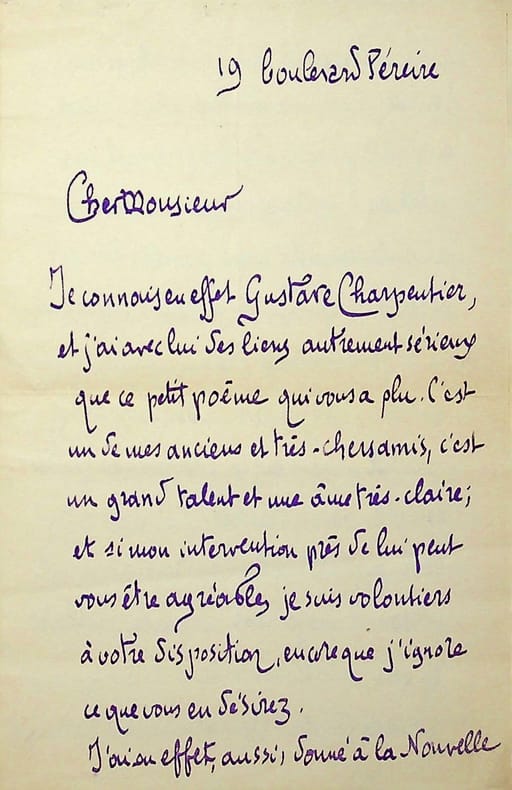 19 boulevard Péreire
Cher Monsieur
Je connais en effet Gustave Charpentier,
et j'ai avec lui des liens autrement sérieux
que ce petit poême qui vous a plu. C'est
un de mes anciens et très-chers amis, c'est
un grand talent et une âme très-claire ;
et si mon intervention près de lui peut
vous être agréable, je suis volontiers
à votre disposition, encore que j'ignore
ce que vous en désirez.
J'ai en effet, aussi, donné à la Nouvelle